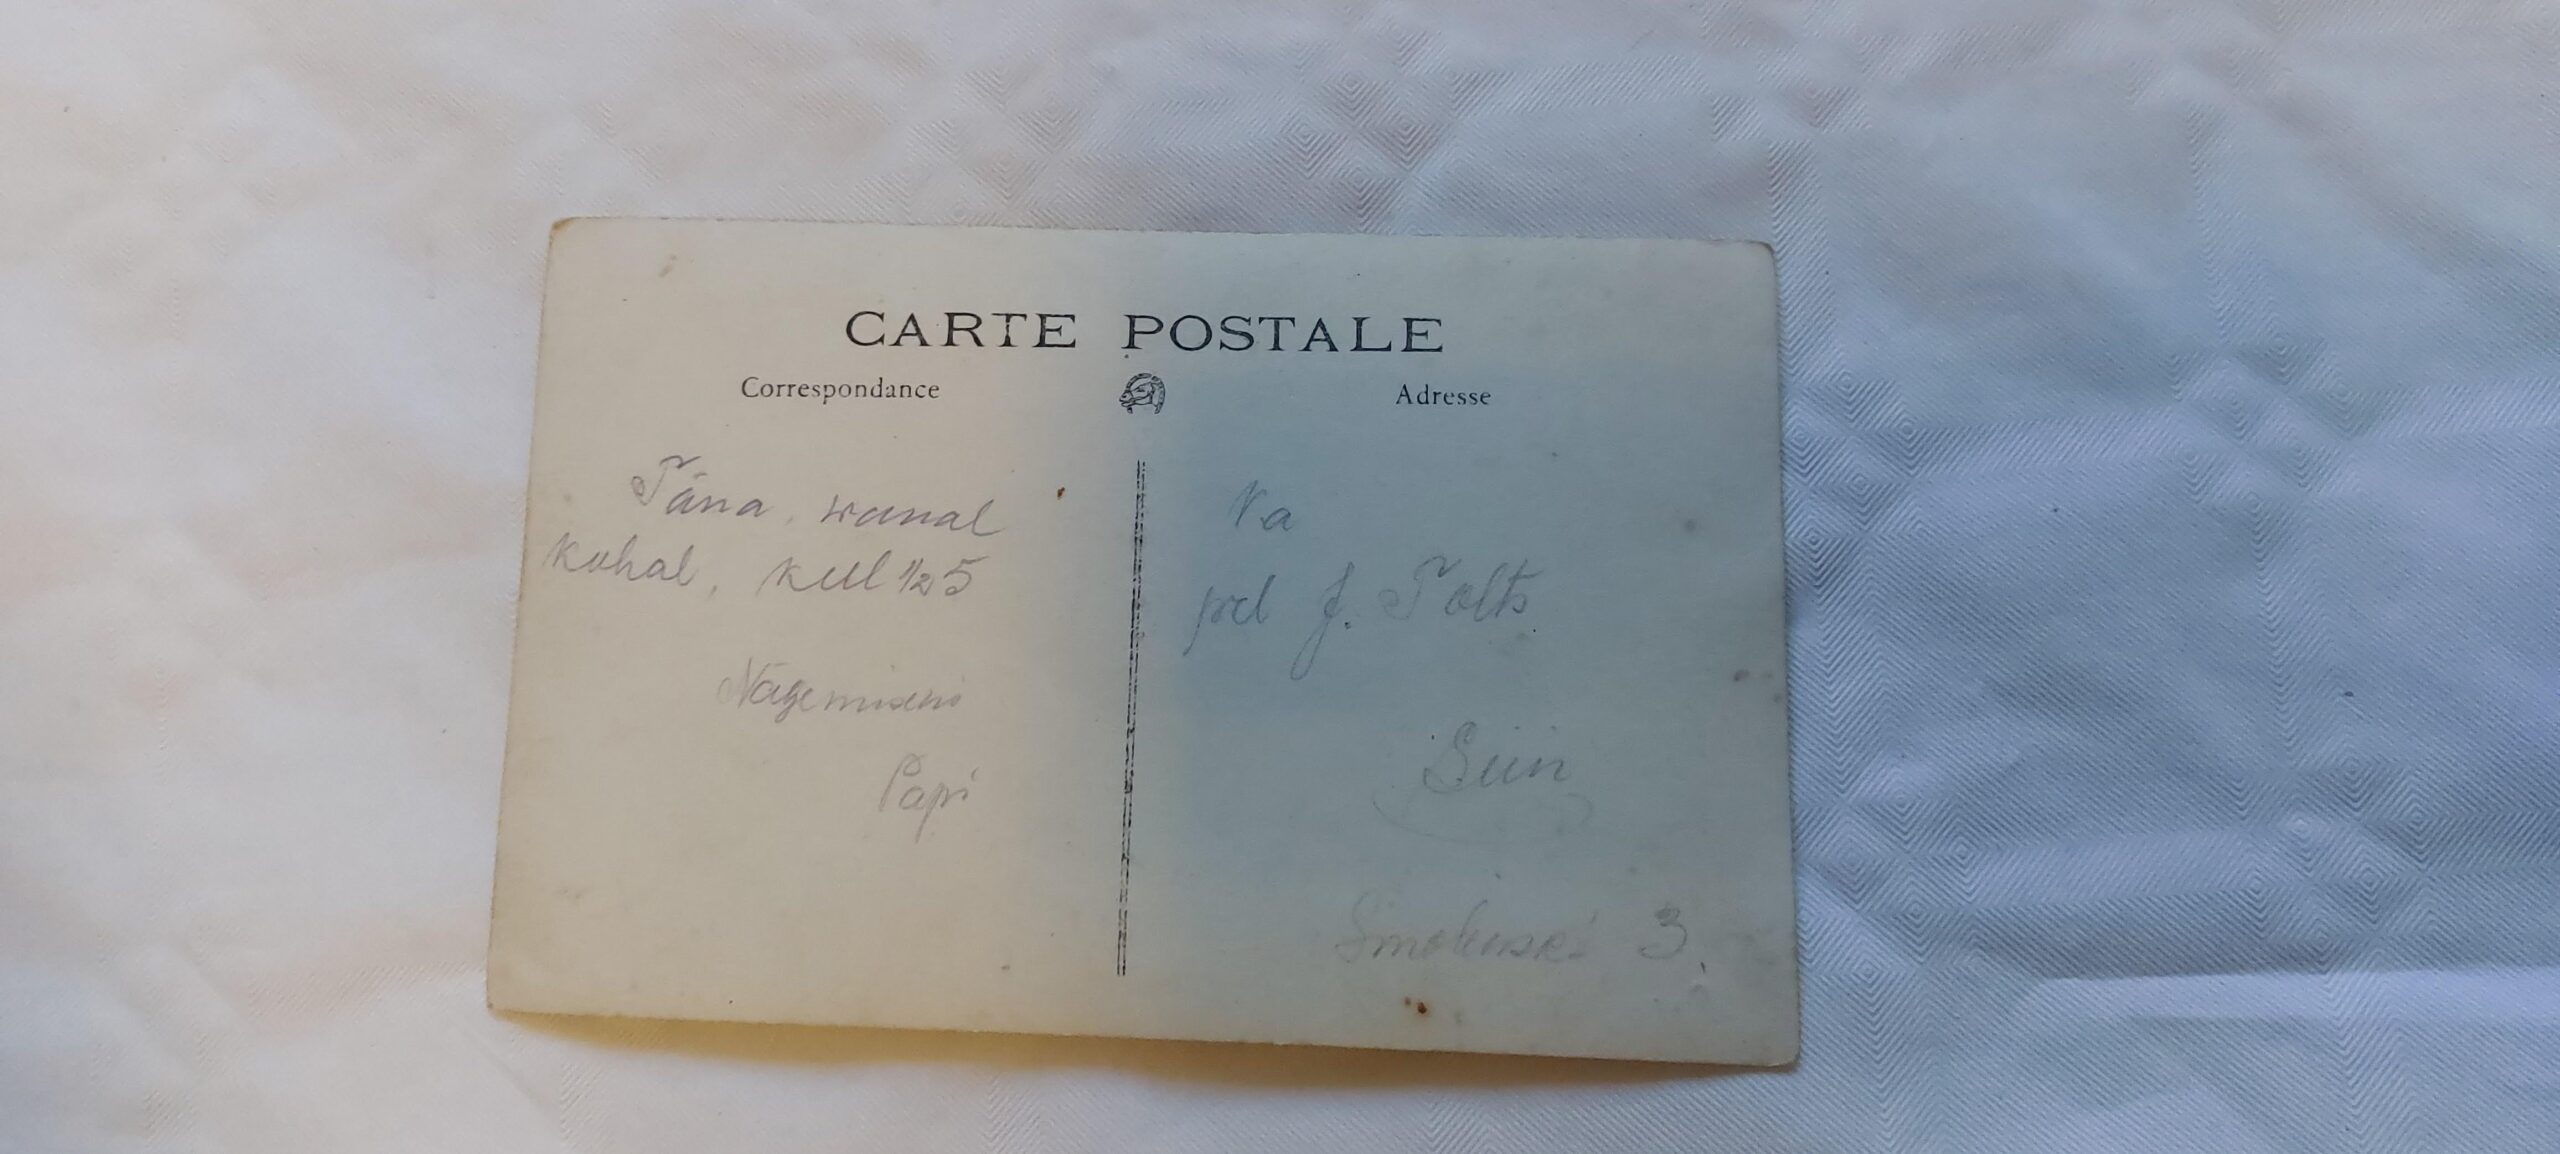 CARTE POSTALE
Correspondance
Adresse
Täna, wanal
kohal, kell 1/2 5
Nägemiseni
Papi
Va
prl J. Tolts
Siin
3